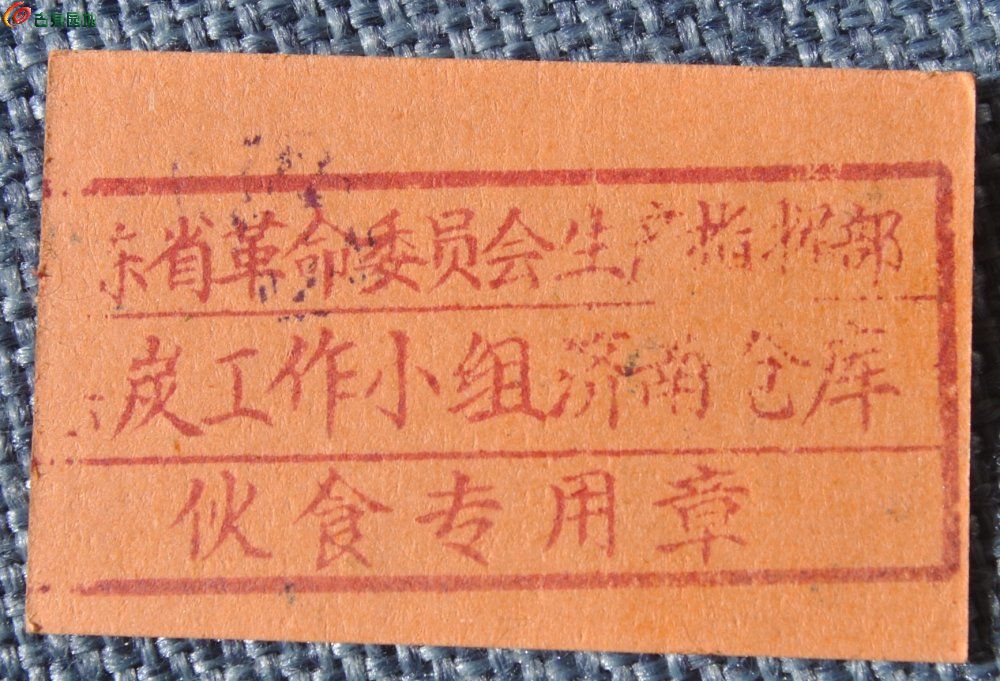 东省革命委员会生产指挥部
炭工作小组济南仓库
伙食专用章